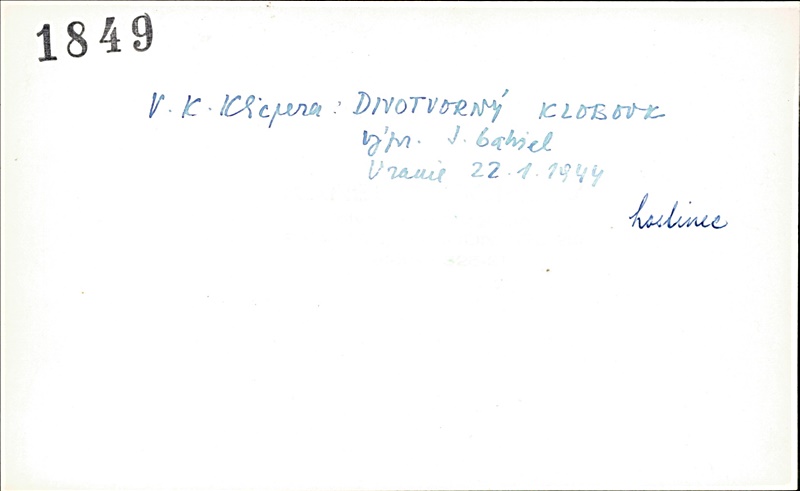 1849
V. K. Klicpera: DIVOTVORNÝ KLOBOUK
výpr. J. Gabriel
Uranie 22.1.1944
hostinec